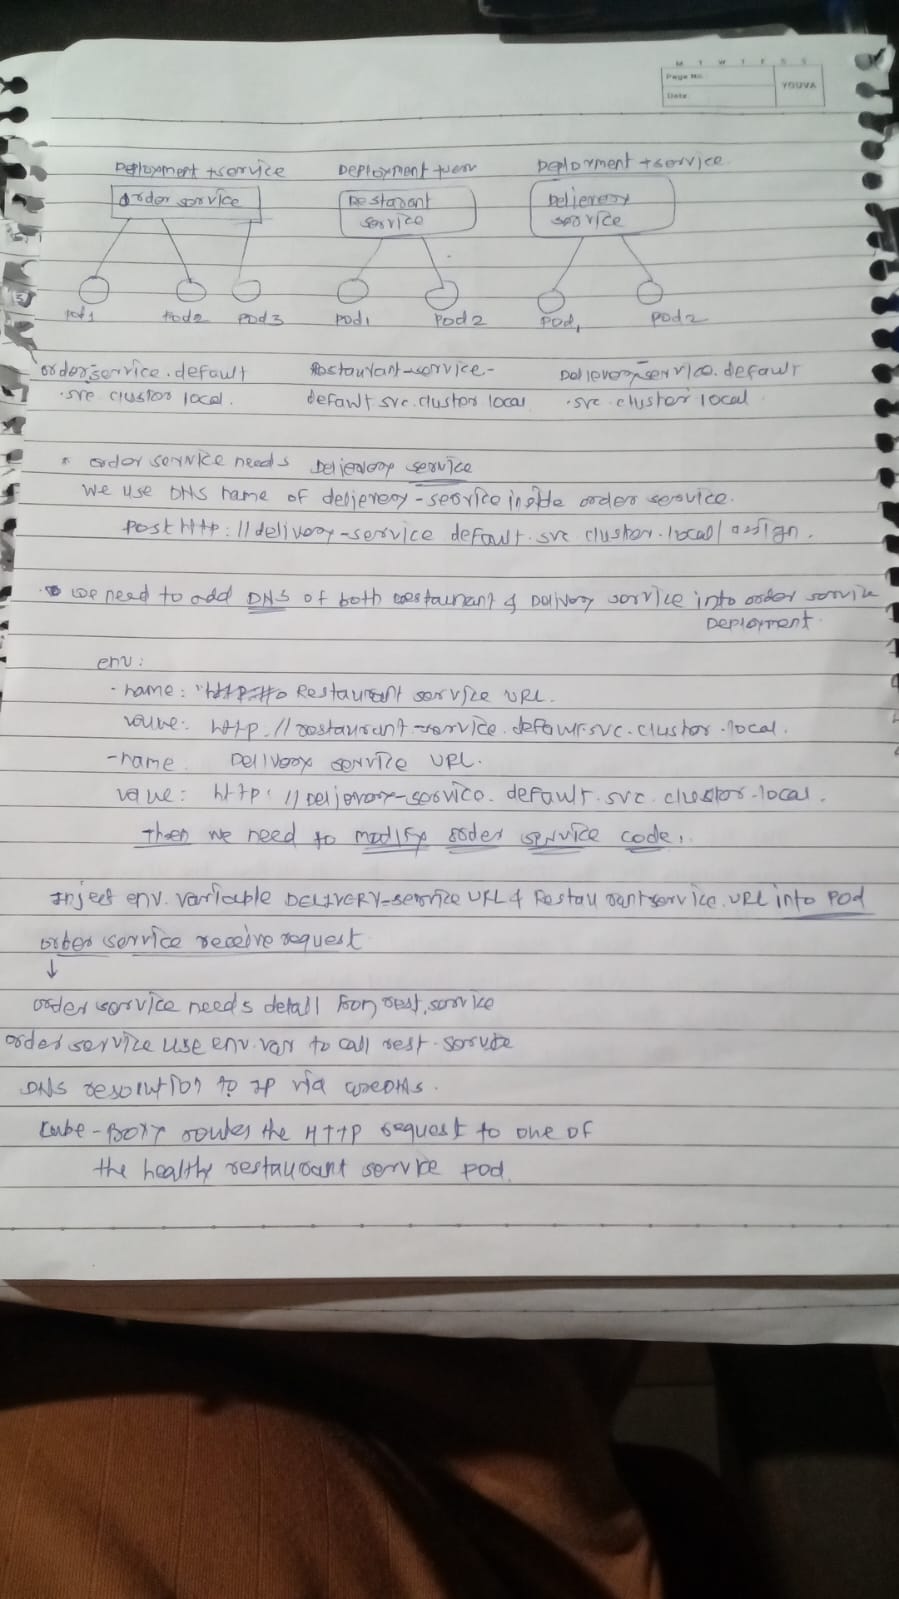 M T W T F S S
Page No.:
Date:
YOUVA
Deployment +service Deployment + Deployment + service
order service Restarant service Delievery service
Pod1 Pod2 Pod3 Pod1 Pod2 Pod1 Pod2
order-service.default Restaurant-service- Delievery-service.default
.svc cluster local. default svc.cluster local .svc.cluster local
* order service needs Delievery service
We use DNS name of delievery-service inside order service.
Post http://delivery-service default.svc cluster.local/assign.
We need to add DNS of both restaurant & Delivery service into order service
Deployment.
env:
- name: Restaurant service URL.
value: http.//restaurant-service.default.svc.cluster.local.
-name Delivery service URL.
value: http://Delievery-service.default.svc.cluster.local.
Then we need to modify order service code.
Inject env. variable DELIVERY-service URL & Restaurant service.URL into POD
order service receive request
↓
order service needs detail from rest.service
order service use env.var to call rest.service
DNS resolution to IP via coreDNS.
kube-proxy routes the HTTP request to one of
the healthy restaurant service pod.